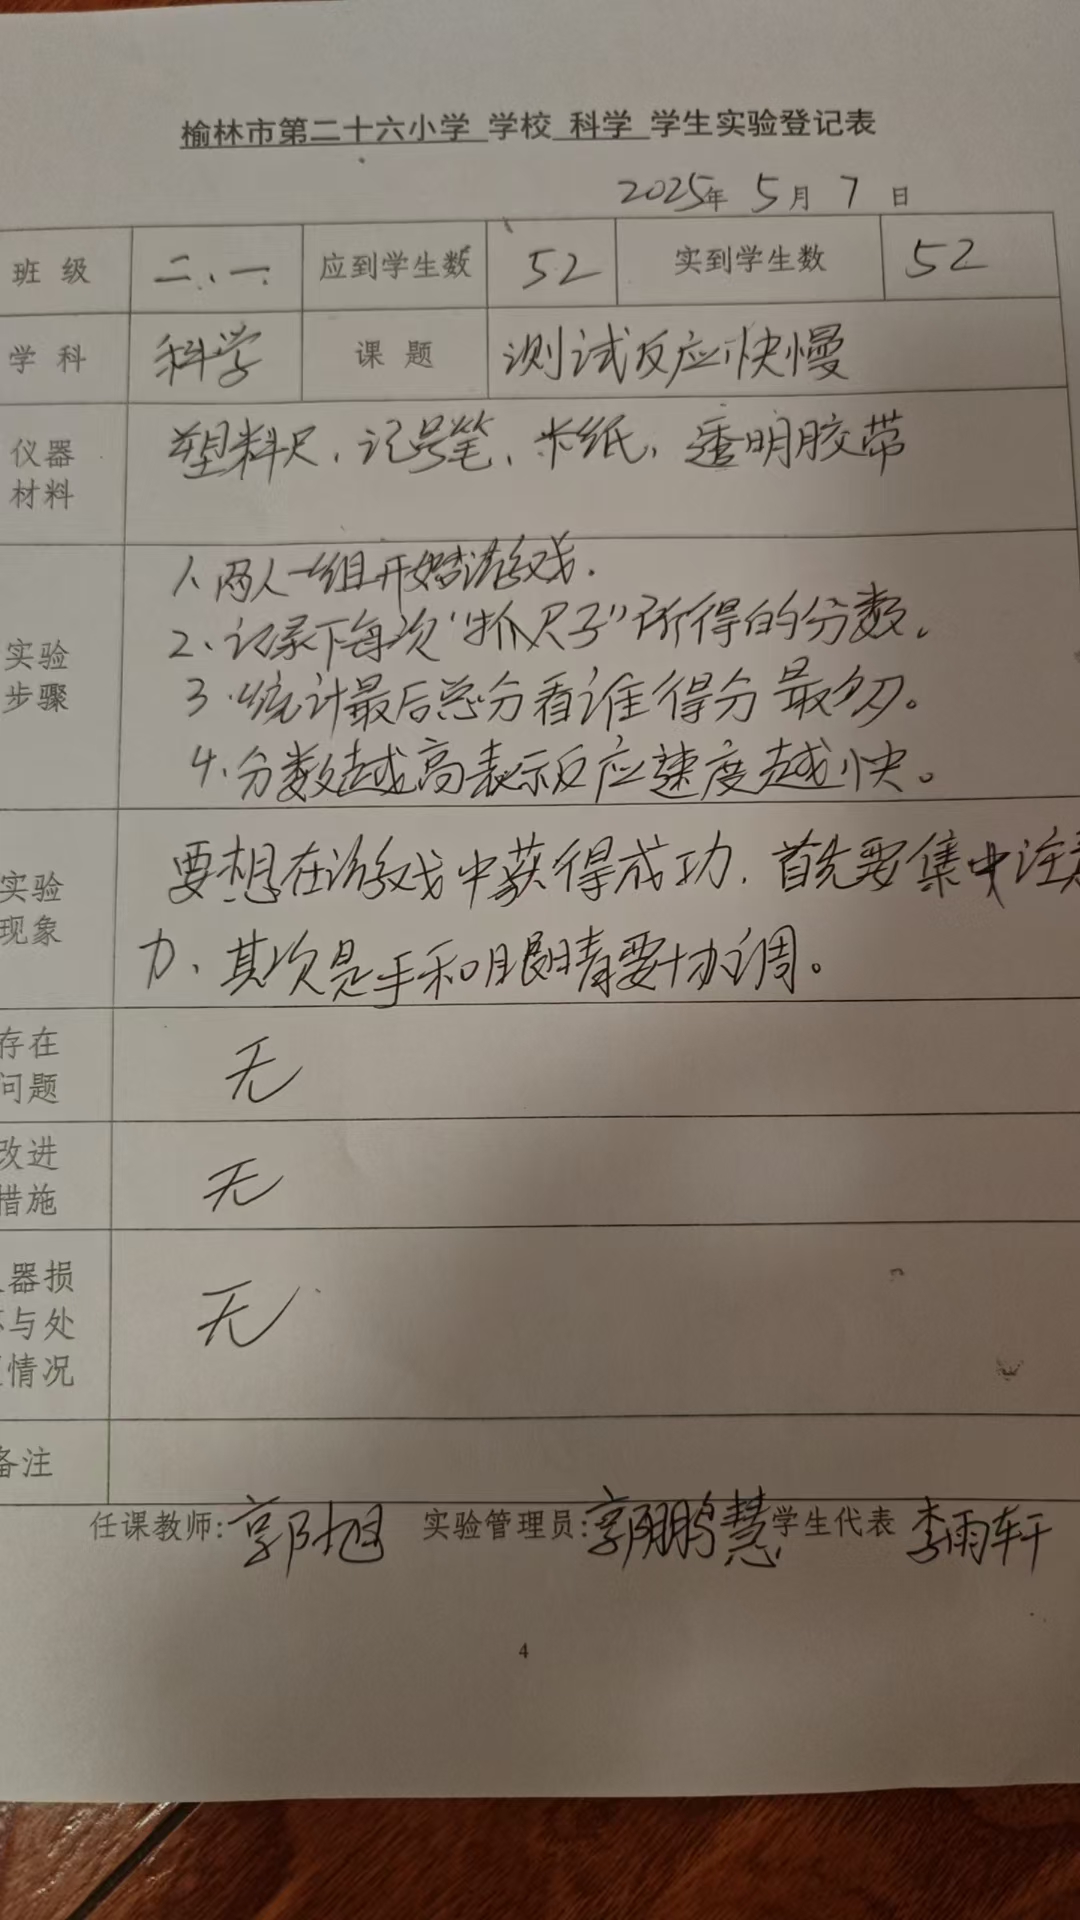 榆林市第二十六小学 学校 科学 学生实验登记表
2025年 5月 7日
班 级 二、一 应到学生数 52 实到学生数 52
学 科 科学 课 题 测试反应快慢
仪器
材料
塑料尺、记号笔、卡纸、透明胶带
实验
步骤
1、两人一组开始游戏.
2、记录下每次“抓尺子”所得的分数。
3.统计最后总分看谁得分最多。
4.分数越高表示反应速度越快。
实验
现象
要想在游戏中获得成功.首先要集中注意
力、其次是手和眼睛要协调。
存在
问题
无
改进
措施
无
器损
与处
情况
无
备注
任课教师:郭旭 实验管理员:郭鹏慧 学生代表 李雨轩
4